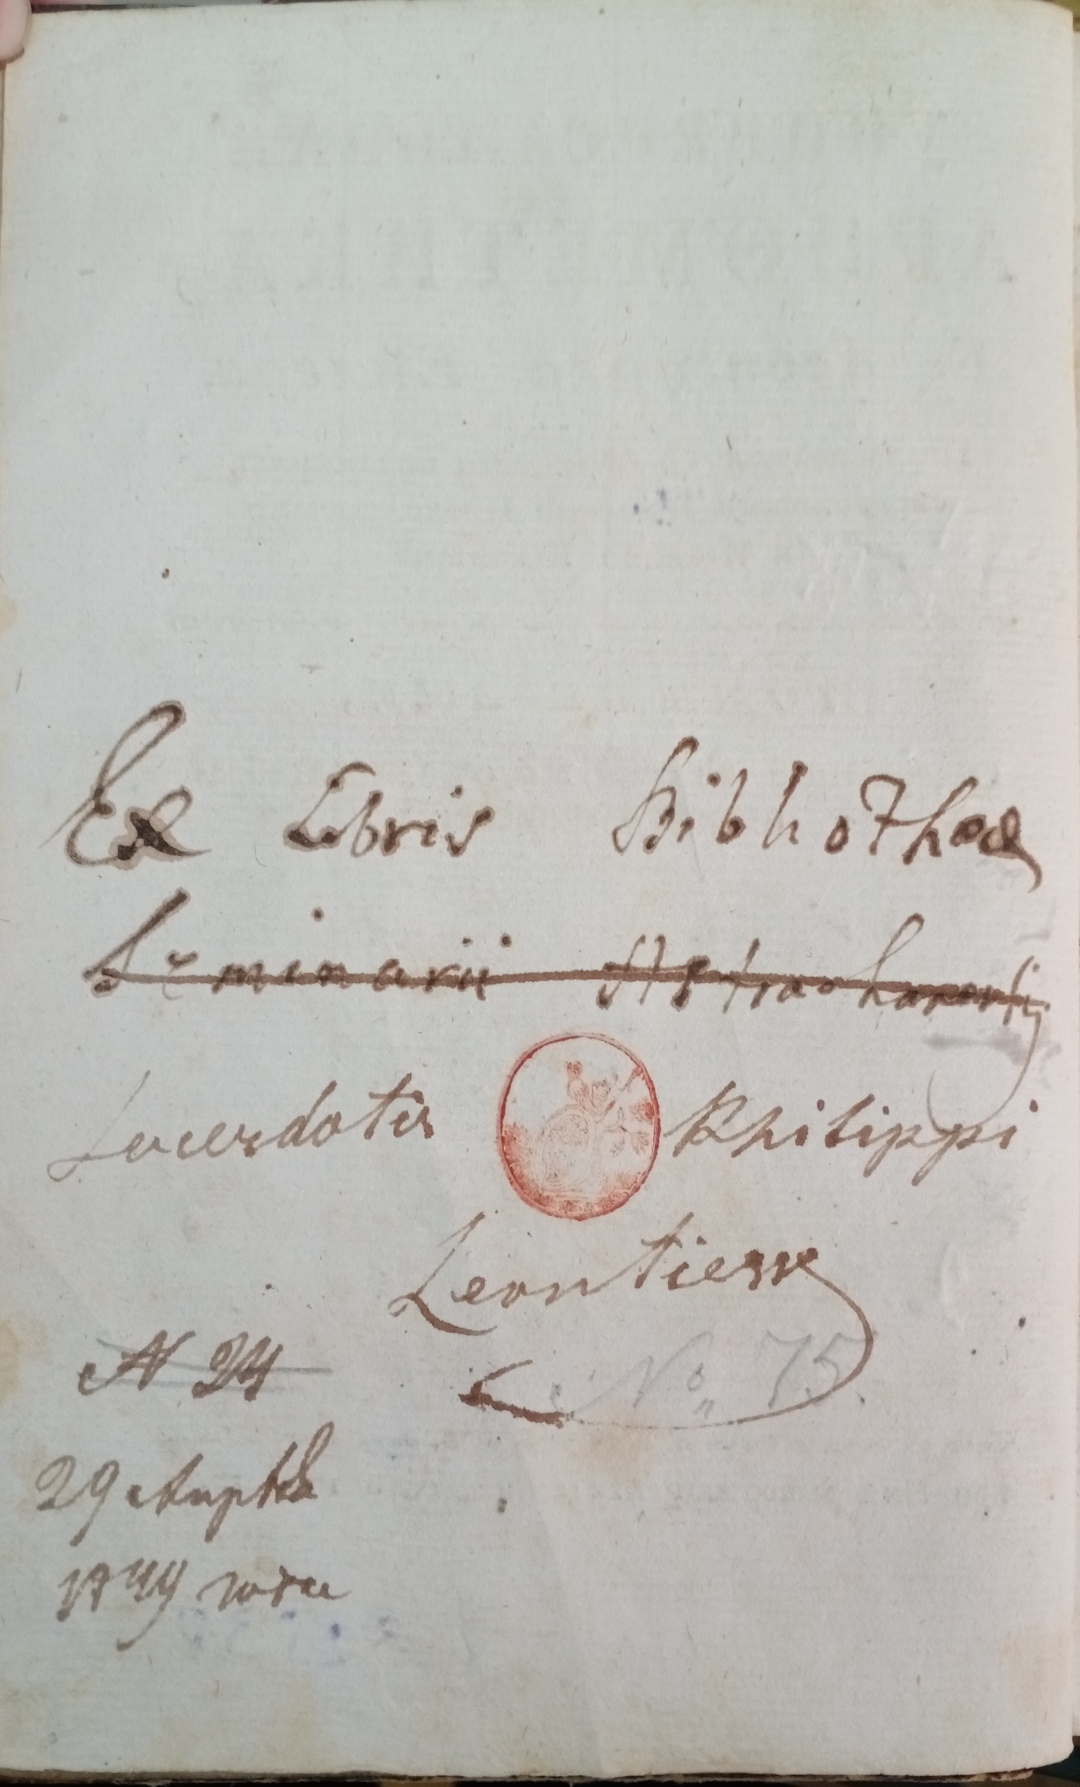 Ex Libris Bibliothecæ
Seminarii Astrachanensij
Sacerdotis Philippi
Leontiew
N 24
No 75.
29 Апрѣля
1799 года